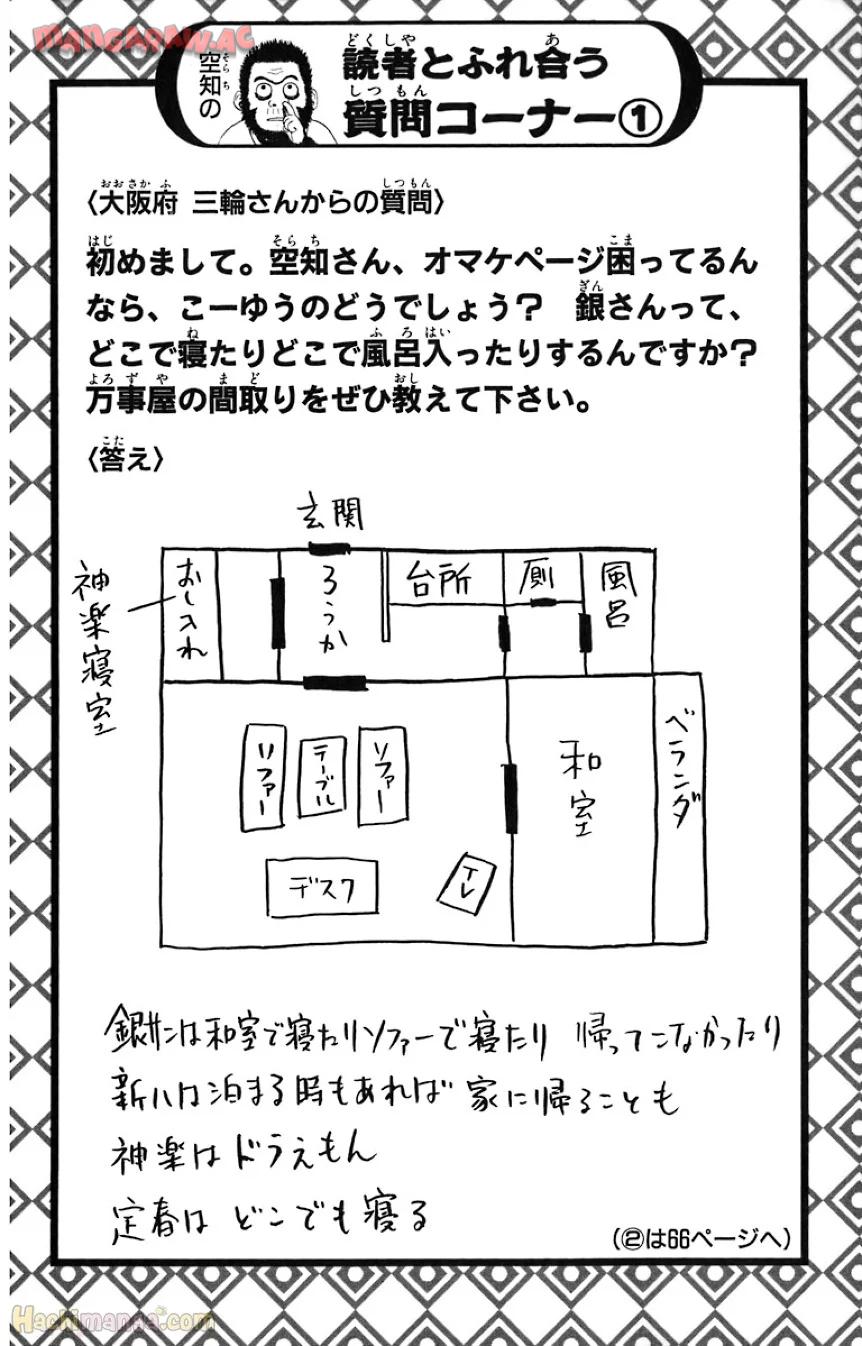 MANGARAW.AC
空知の
読者とふれ合う
質問コーナー①
〈大阪府 三輪さんからの質問〉
初めまして。空知さん、オマケページ困ってるん
なら、こーゆうのどうでしょう？　銀さんって、
どこで寝たりどこで風呂入ったりするんですか？
万事屋の間取りをぜひ教えて下さい。
〈答え〉
玄関
神楽寝室
おし入れ
ろうか
台所
厠
風呂
ソファー
テーブル
ソファー
和室
ベランダ
デスク
TV
銀サンは和室で寝たりソファーで寝たり 帰ってこなかったり
新八は泊まる時もあれば 家に帰ることも
神楽はドラえもん
定春は どこでも寝る
（②は66ページへ）
Hachimanga.com